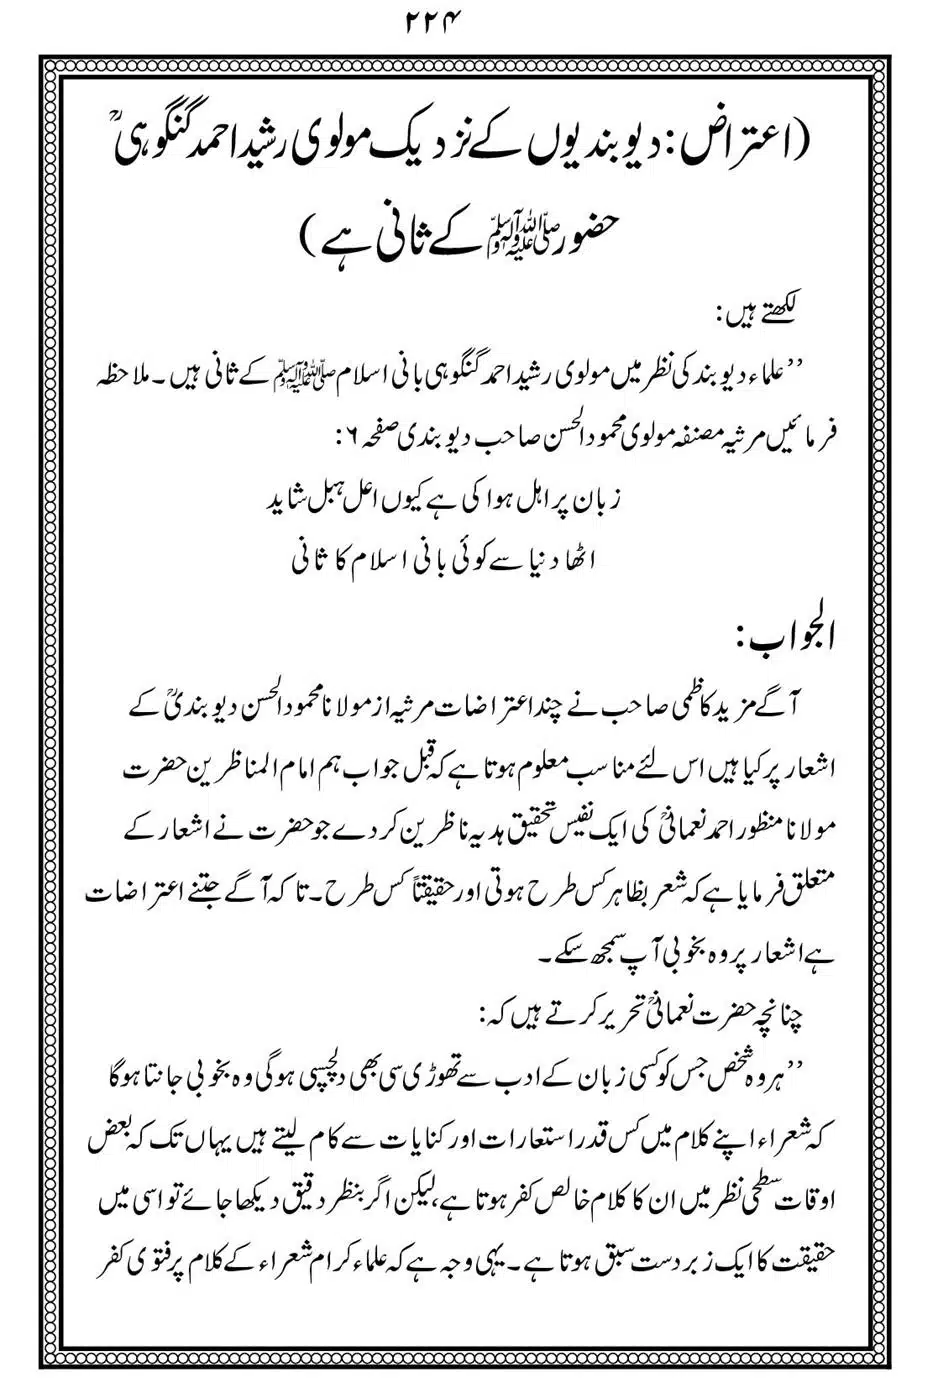 ۲۲۴
(اعتراض: دیوبندیوں کے نزدیک مولوی رشید احمد گنگوہیؒ
حضور ﷺ کے ثانی ہے)
لکھتے ہیں:
’’علماء دیوبند کی نظر میں مولوی رشید احمد گنگوہی بانی اسلام ﷺ کے ثانی ہیں۔ ملاحظہ
فرمائیں مرثیہ مصنفہ مولوی محمود الحسن صاحب دیوبندی صفحہ ۶:
زبان پر اہل ہوا کی ہے کیوں اعل ہبل شاید
اٹھا دنیا سے کوئی بانی اسلام کا ثانی
الجواب:
آگے مزید کاظمی صاحب نے چند اعتراضات مرثیہ از مولانا محمود الحسن دیوبندیؒ کے
اشعار پر کیا ہیں اس لئے مناسب معلوم ہوتا ہے کہ قبل جواب ہم امام المناظرین حضرت
مولانا منظور احمد نعمانیؒ کی ایک نفیس تحقیق ہدیہ ناظرین کردے جو حضرت نے اشعار کے
متعلق فرمایا ہے کہ شعر بظاہر کس طرح ہوتی اور حقیقتاً کس طرح۔ تاکہ آگے جتنے اعتراضات
ہے اشعار پر وہ بخوبی آپ سمجھ سکے۔
چنانچہ حضرت نعمانیؒ تحریر کرتے ہیں کہ:
’’ہر وہ شخص جس کو کسی زبان کے ادب سے تھوڑی سی بھی دلچسپی ہوگی وہ بخوبی جانتا ہوگا
کہ شعراء اپنے کلام میں کس قدر استعارات اور کنایات سے کام لیتے ہیں یہاں تک کہ بعض
اوقات سطحی نظر میں ان کا کلام خالص کفر ہوتا ہے، لیکن اگر بنظر دقیق دیکھا جائے تو اسی میں
حقیقت کا ایک زبردست سبق ہوتا ہے۔ یہی وجہ ہے کہ علماء کرام شعراء کے کلام پر فتوی کفر